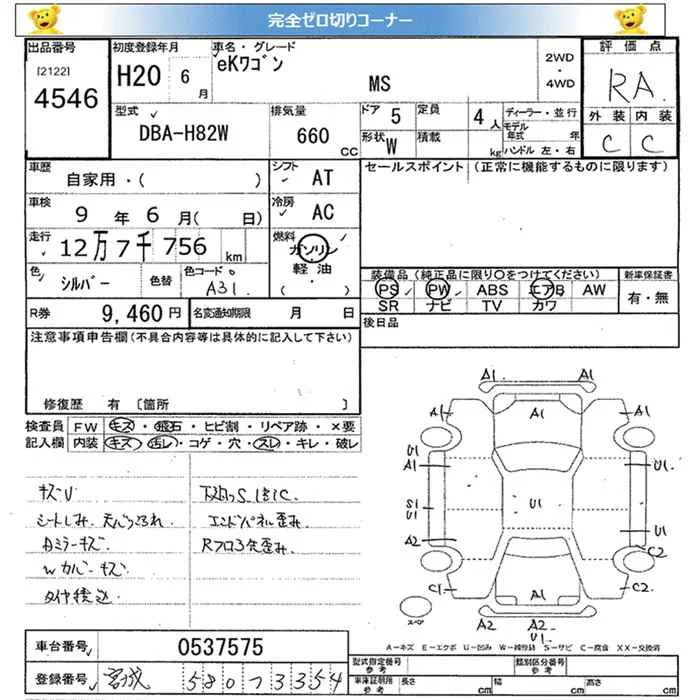 完全ゼロ切りコーナー
出品番号 初度登録年月 車名・グレード 2WD・4WD 評価点
[2122] 4546 H20 6月 eKワゴン MS RA
型式 排気量 ドア 5 定員 4人 ディーラー・並行 外装 内装
DBA-H82W 660cc 形状 W 積載 kg モデル年式 年 C C
ハンドル 左・右
車歴 自家用・( ) シフト AT セールスポイント (正常に機能するものに限ります)
車検 9年6月( 日) 冷房 AC
走行 12万7千756km 燃料 ガソリン
軽油
・( )
色 シルバー 色替 色コード A31 装備品(純正品に限り〇をつけてください) 新車保証書
PS PW ABS エアB AW 有・無
SR ナビ TV カワ
R券 9,460円 名変通知期限 月 日 後日品
注意事項申告欄(不具合内容等は具体的に記入して下さい)
修復歴 有 〔箇所 〕
検査員 FW キズ・飛石・ヒビ割・リペア跡・×要
記入欄 内装 キズ・汚レ・コゲ・穴・スレ・キレ・破レ
キズU
シートしみ
Bミラーキズ エンドパネル歪み
Wカバーキズ Rフロア歪み
A1 A1
A1 A1 A1
U1
A1 U1
S1
U1 U1
U1
A2 C2
C1 A1 C2
スペア A2 A2
U1
A-キズ E-エクボ U-凹み W-補修跡 S-サビ C-腐食 XX-交換済
車台番号 0537575
登録番号 宮城 580 ヲ 3354
型式指定番号 参考 類別区分番号 参考
車庫証明用 参考 長さ cm 幅 cm 高さ cm